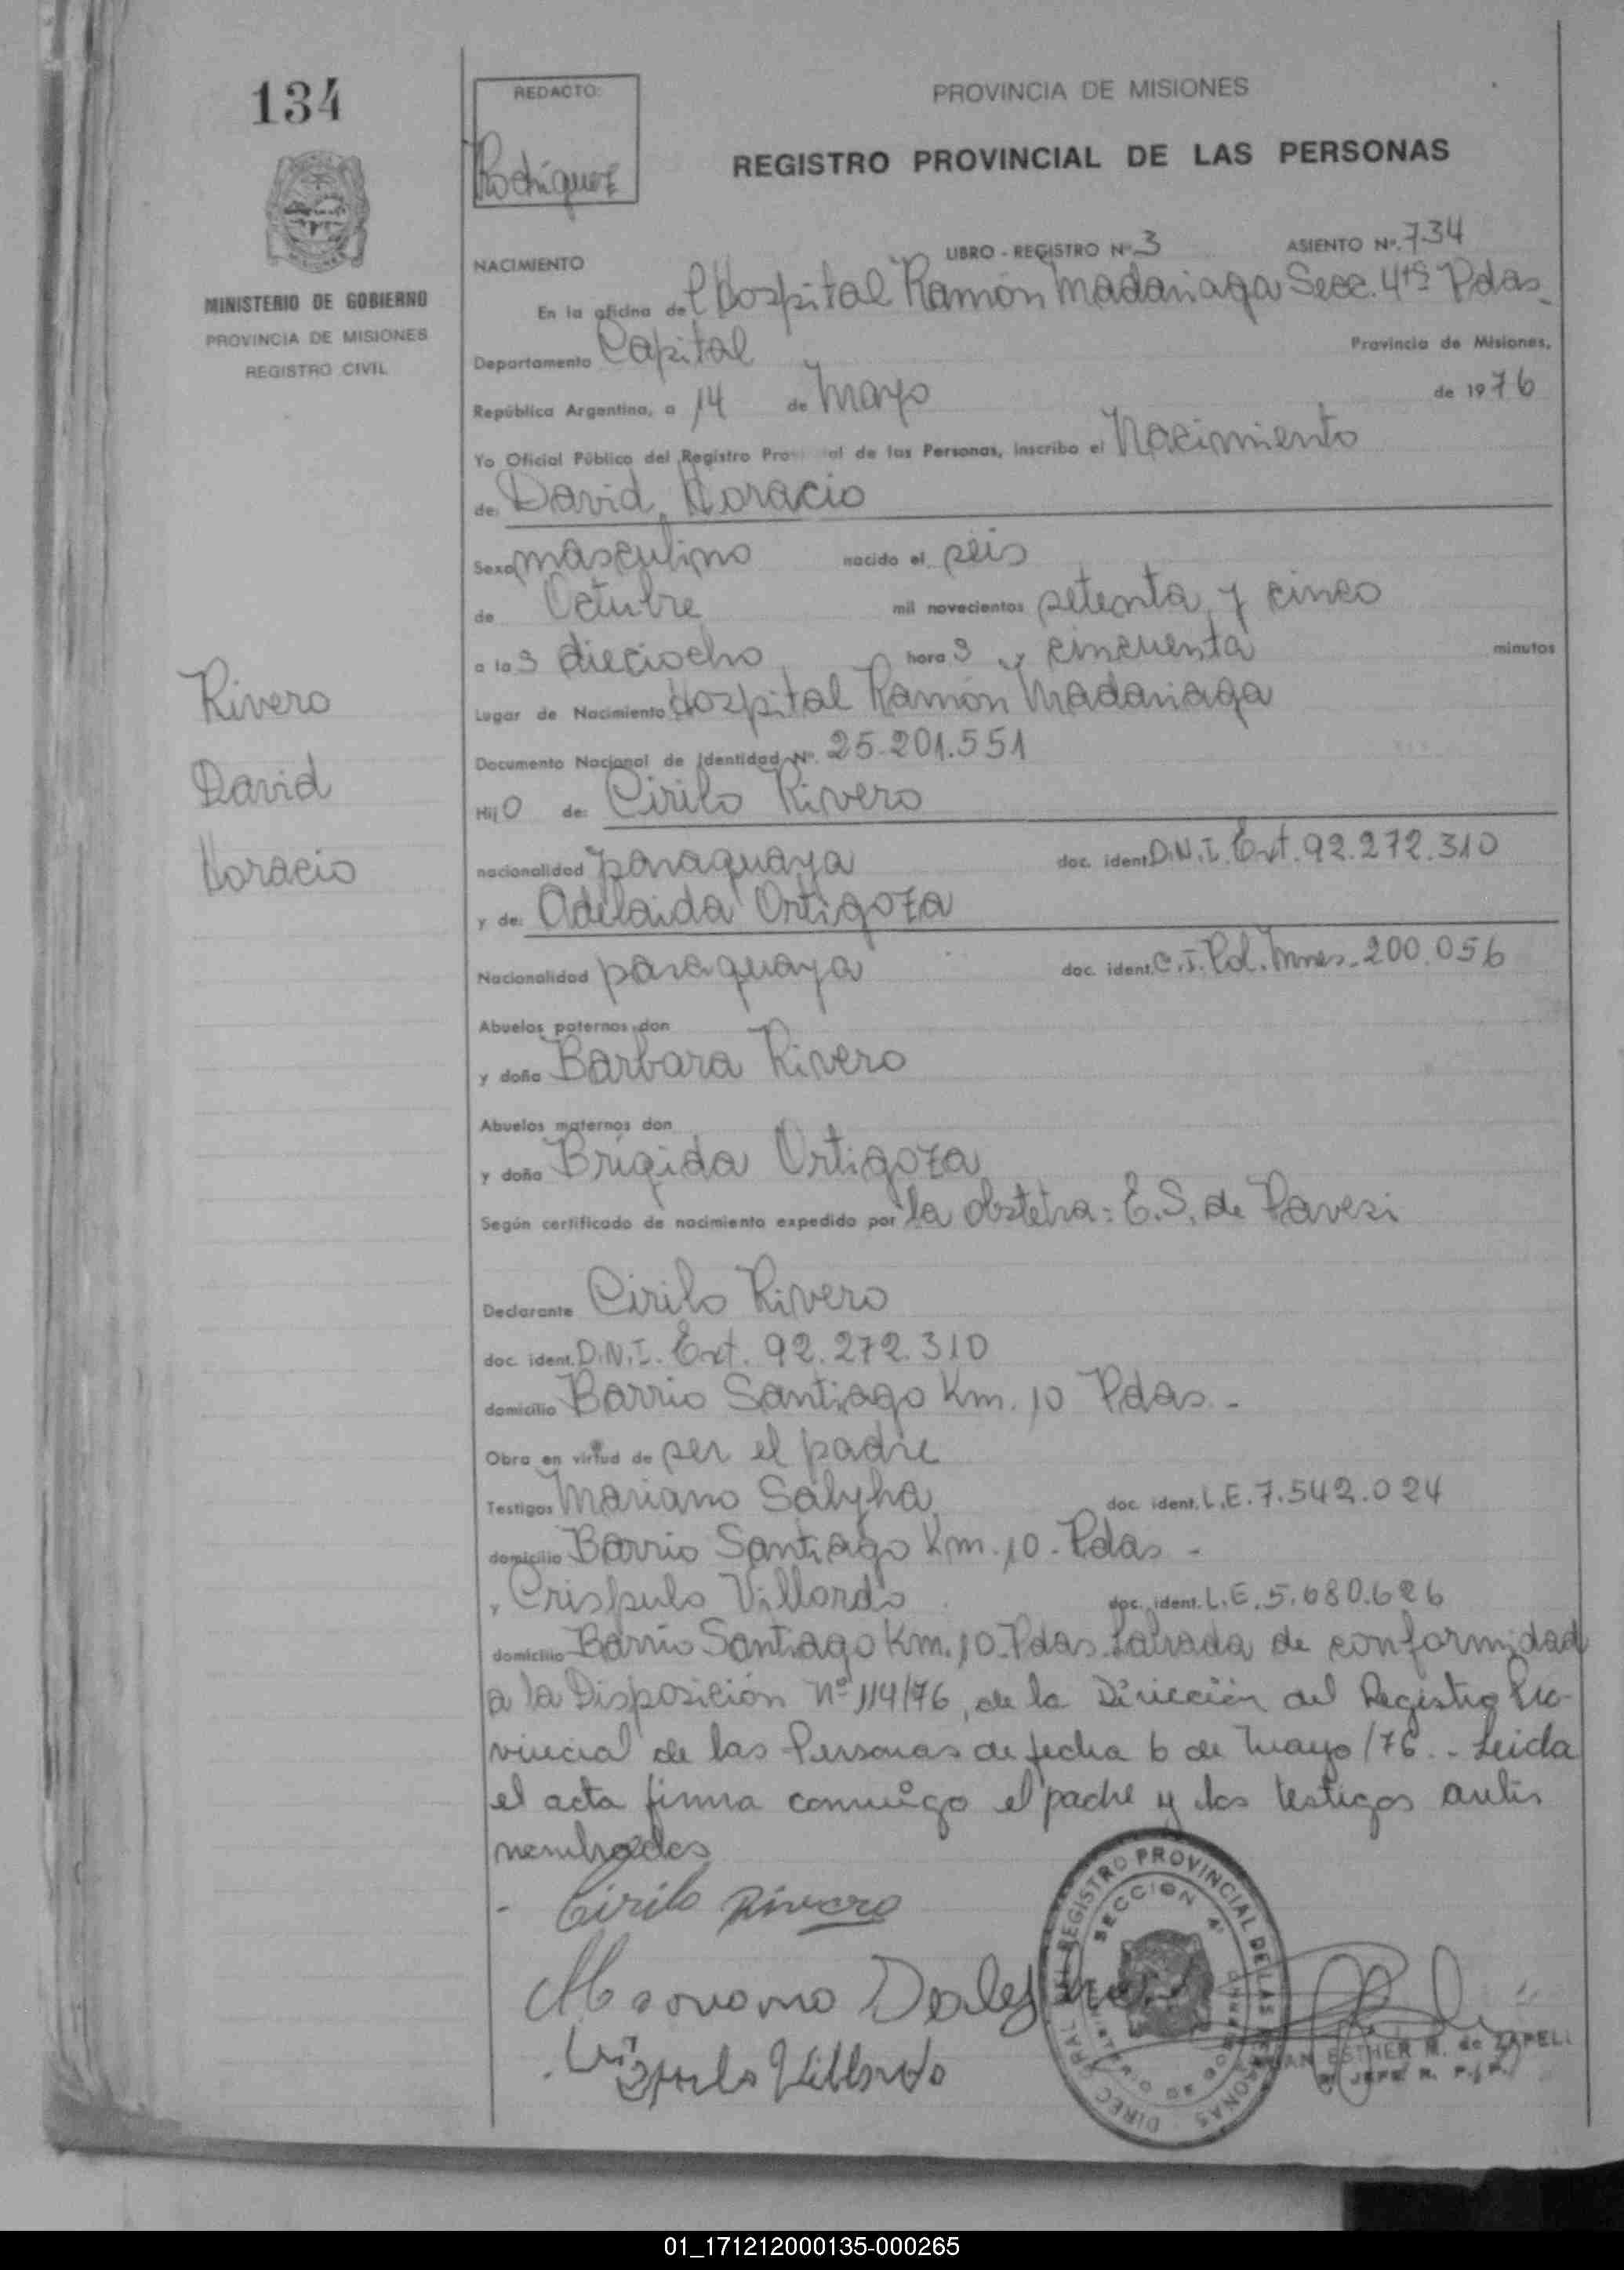 134
REDACTO:
Rodriguez
PROVINCIA DE MISIONES
REGISTRO PROVINCIAL DE LAS PERSONAS
MINISTERIO DE GOBIERNO
PROVINCIA DE MISIONES
REGISTRO CIVIL
NACIMIENTO
LIBRO - REGISTRO Nº 3 ASIENTO Nº 734
En la oficina del Hospital Ramón Madariaga Secc. 4ta Pdas_
Departamento Capital Provincia de Misiones,
República Argentina, a 14 de Mayo de 1976
Yo Oficial Público del Registro Provincial de las Personas, inscribo el Nacimiento
de: David, Horacio
Sexo masculino nacido el seis
de Octubre mil novecientos setenta y cinco
a las dieciocho horas y cincuenta minutos
Lugar de Nacimiento Hospital Ramón Madariaga
Documento Nacional de Identidad Nº. 25.201.551
Hijo de: Cirilo Rivero
nacionalidad paraguaya doc. ident. D.N.I. Ext. 92.272.310
y de: Adelaida Ortigoza
Nacionalidad paraguaya doc. ident. C.I. Pol. Mnes. 200.056
Rivero
David
Horacio
Abuelos paternos don
y doña Barbara Rivero
Abuelos maternos don
y doña Brígida Ortigoza
Según certificado de nacimiento expedido por la obstetra: E.S. de Pavesi
Declarante Cirilo Rivero
doc. ident. D.N.I. Ext. 92.272.310
domicilio Barrio Santiago Km. 10 Pdas -
Obra en virtud de ser el padre
Testigos Mariano doc. ident. L.E. 7.542.024
domicilio Barrio Santiago Km. 10 - Pdas -
y Crispulo Villordo doc. ident. L.E. 5.680.626
domicilio Barrio Santiago Km. 10 - Pdas. Labrada de conformidad
a la Disposición Nº 114/76, de la Dirección del Registro Pro-
vincial de las Personas de fecha 6 de Mayo/76. - Leida
el acta firma conmigo el padre y los testigos antes
nombrados
- Cirilo Rivero
Villordo
REGISTRO PROVINCIAL DE LAS PERSONAS
SECCION 4ª
ESTHER M. de ZAPELLI
JEFE R. P. P.
01_171212000135-000265